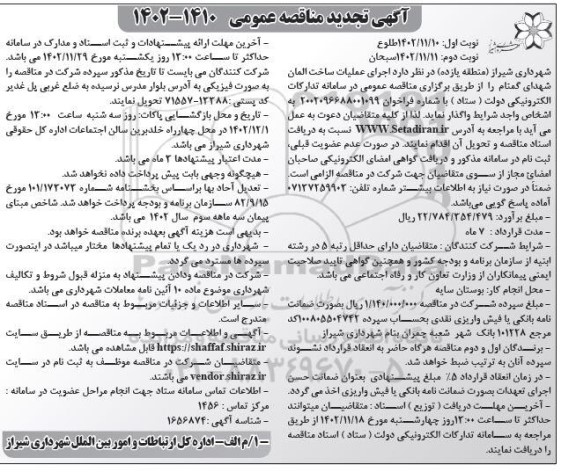 آگهی تجدید مناقصه عمومی ۱۴۱۰-۱۴۰۲
نوبت اول: ۱۴۰۲/۱۱/۱۰طلوع
نوبت دوم: ۱۴۰۲/۱۱/۱۱سبحان
شهرداری شیراز (منطقه یازده) در نظر دارد اجرای عملیات ساخت المان
شهدای گمنام را از طریق برگزاری مناقصه عمومی در سامانه تدارکات
الکترونیکی دولت ( ستاد ) با شماره فراخوان ۲۰۰۲۰۹۶۶۸۸۰۰۱۰۹۹ به
اشخاص واجد شرایط واگذار نماید. لذا از کلیه متقاضیان دعوت به عمل
می آید با مراجعه به آدرس WWW.Setadiran.ir نسبت به دریافت
اسناد مناقصه و تحویل آن اقدام نمایند. در صورت عدم عضویت قبلی،
ثبت نام در سامانه مذکور و دریافت گواهی امضای الکترونیکی صاحبان
امضای مجاز از سوی متقاضیان جهت شرکت در مناقصه الزامی است.
ضمناً در صورت نیاز به اطلاعات بیشتر شماره تلفن: ۰۷۱۳۷۲۵۹۹۰۳
آماده پاسخ گویی می‌باشد.
- مبلغ برآورد: ۲۲/۷۸۴/۲۵۴/۴۷۹ ریال
- مدت قرارداد : ۷ ماه
- شرایط شرکت کنندگان : متقاضیان دارای حداقل رتبه ۵ در رشته
ابنیه از سازمان برنامه و بودجه کشور و همچنین گواهی تایید صلاحیت
ایمنی پیمانکاران از وزارت تعاون کار و رفاه اجتماعی می باشد.
- محل انجام کار: بوستان سایه
- مبلغ سپرده شرکت در مناقصه ۱/۱۴۰/۰۰۰/۰۰۰ ریال بصورت ضمانت
نامه بانکی یا فیش واریزی نقدی بحساب سپرده ۱۰۰۸۰۵۵۰۴۷۴۲کد
مرجع ۱۰۱۲۲۸ بانک شهر شعبه چمران بنام شهرداری شیراز
- برندگان اول و دوم مناقصه هرگاه حاضر به انعقاد قرارداد نشوند
سپرده آنان به ترتیب ضبط خواهد شد.
- در زمان انعقاد قرارداد ۵٪ مبلغ پیشنهادی بعنوان ضمانت حسن
اجرای تعهدات بصورت ضمانت نامه بانکی یا فیش واریزی اخذ می گردد.
- آخرین مهلت دریافت ( توزیع ) اسناد : متقاضیان میتوانند
حداکثر تا ساعت ۱۳:۰۰روز چهارشنبه مورخ ۱۴۰۲/۱۱/۱۸ از طریق
مراجعه به سامانه تدارکات الکترونیکی دولت ( ستاد ) اسناد مناقصه
را دریافت نمایند.
- آخرین مهلت ارائه پیشنهادات و ثبت اسناد و مدارک در سامانه
حداکثر تا ساعت ۱۳:۰۰ روز یکشنبه مورخ ۱۴۰۲/۱۱/۲۹ می باشد.
شرکت کنندگان می بایست تا تاریخ مذکور سپرده شرکت در مناقصه را
به صورت فیزیکی به آدرس بلوار مدرس نرسیده به ضلع غربی پل غدیر
کد پستی :۱۳۳۸۸-۷۱۵۵۷ تحویل نمایند.
- تاریخ و محل بازگشایی پاکات: روز سه شنبه ساعت ۱۳:۰۰ مورخ
۱۴۰۲/۱۲/۱ در محل چهارراه خلدبرین سالن اجتماعات اداره کل حقوقی
شهرداری شیراز می باشد.
- مدت اعتبار پیشنهادها ۳ ماه می باشد.
- هیچگونه وجهی بابت پیش پرداخت داده نخواهد شد.
- تعدیل آحاد بها براساس بخشنامه شماره ۱۰۱/۱۷۳۰۷۳ مورخ
۸۲/۹/۱۵ سازمان برنامه و بودجه پرداخت خواهد شد. شاخص مبنای
پیمان سه ماهه سوم سال ۱۴۰۲ می باشد.
- بدیهی است هزینه آگهی بعهده برنده مناقصه خواهد بود.
- شهرداری در رد یک یا تمام پیشنهادها مختار میباشد در اینصورت
سپرده ها مسترد می گردد.
- شرکت در مناقصه ودادن پیشنهاد به منزله قبول شروط و تکالیف
شهرداری موضوع ماده ۱۰ آئین نامه معاملات شهرداری می باشد.
- سایر اطلاعات و جزئیات مربوط به مناقصه در اسناد مناقصه
مندرج است.
- آگهی و اطلاعات مربوط به مناقصه از طریق سایت
https://shaffaf.shiraz.ir قابل مشاهده می باشد.
- متقاضیان شرکت در مناقصه موظف به ثبت نام در سایت
vendor.shiraz.ir می باشند.
- اطلاعات تماس سامانه ستاد جهت انجام مراحل عضویت در سامانه :
مرکز تماس : ۱۴۵۶
- شناسه آگهی :۱۶۵۶۸۷۴
۱/م الف- اداره کل ارتباطات و امور بین الملل شهرداری شیراز